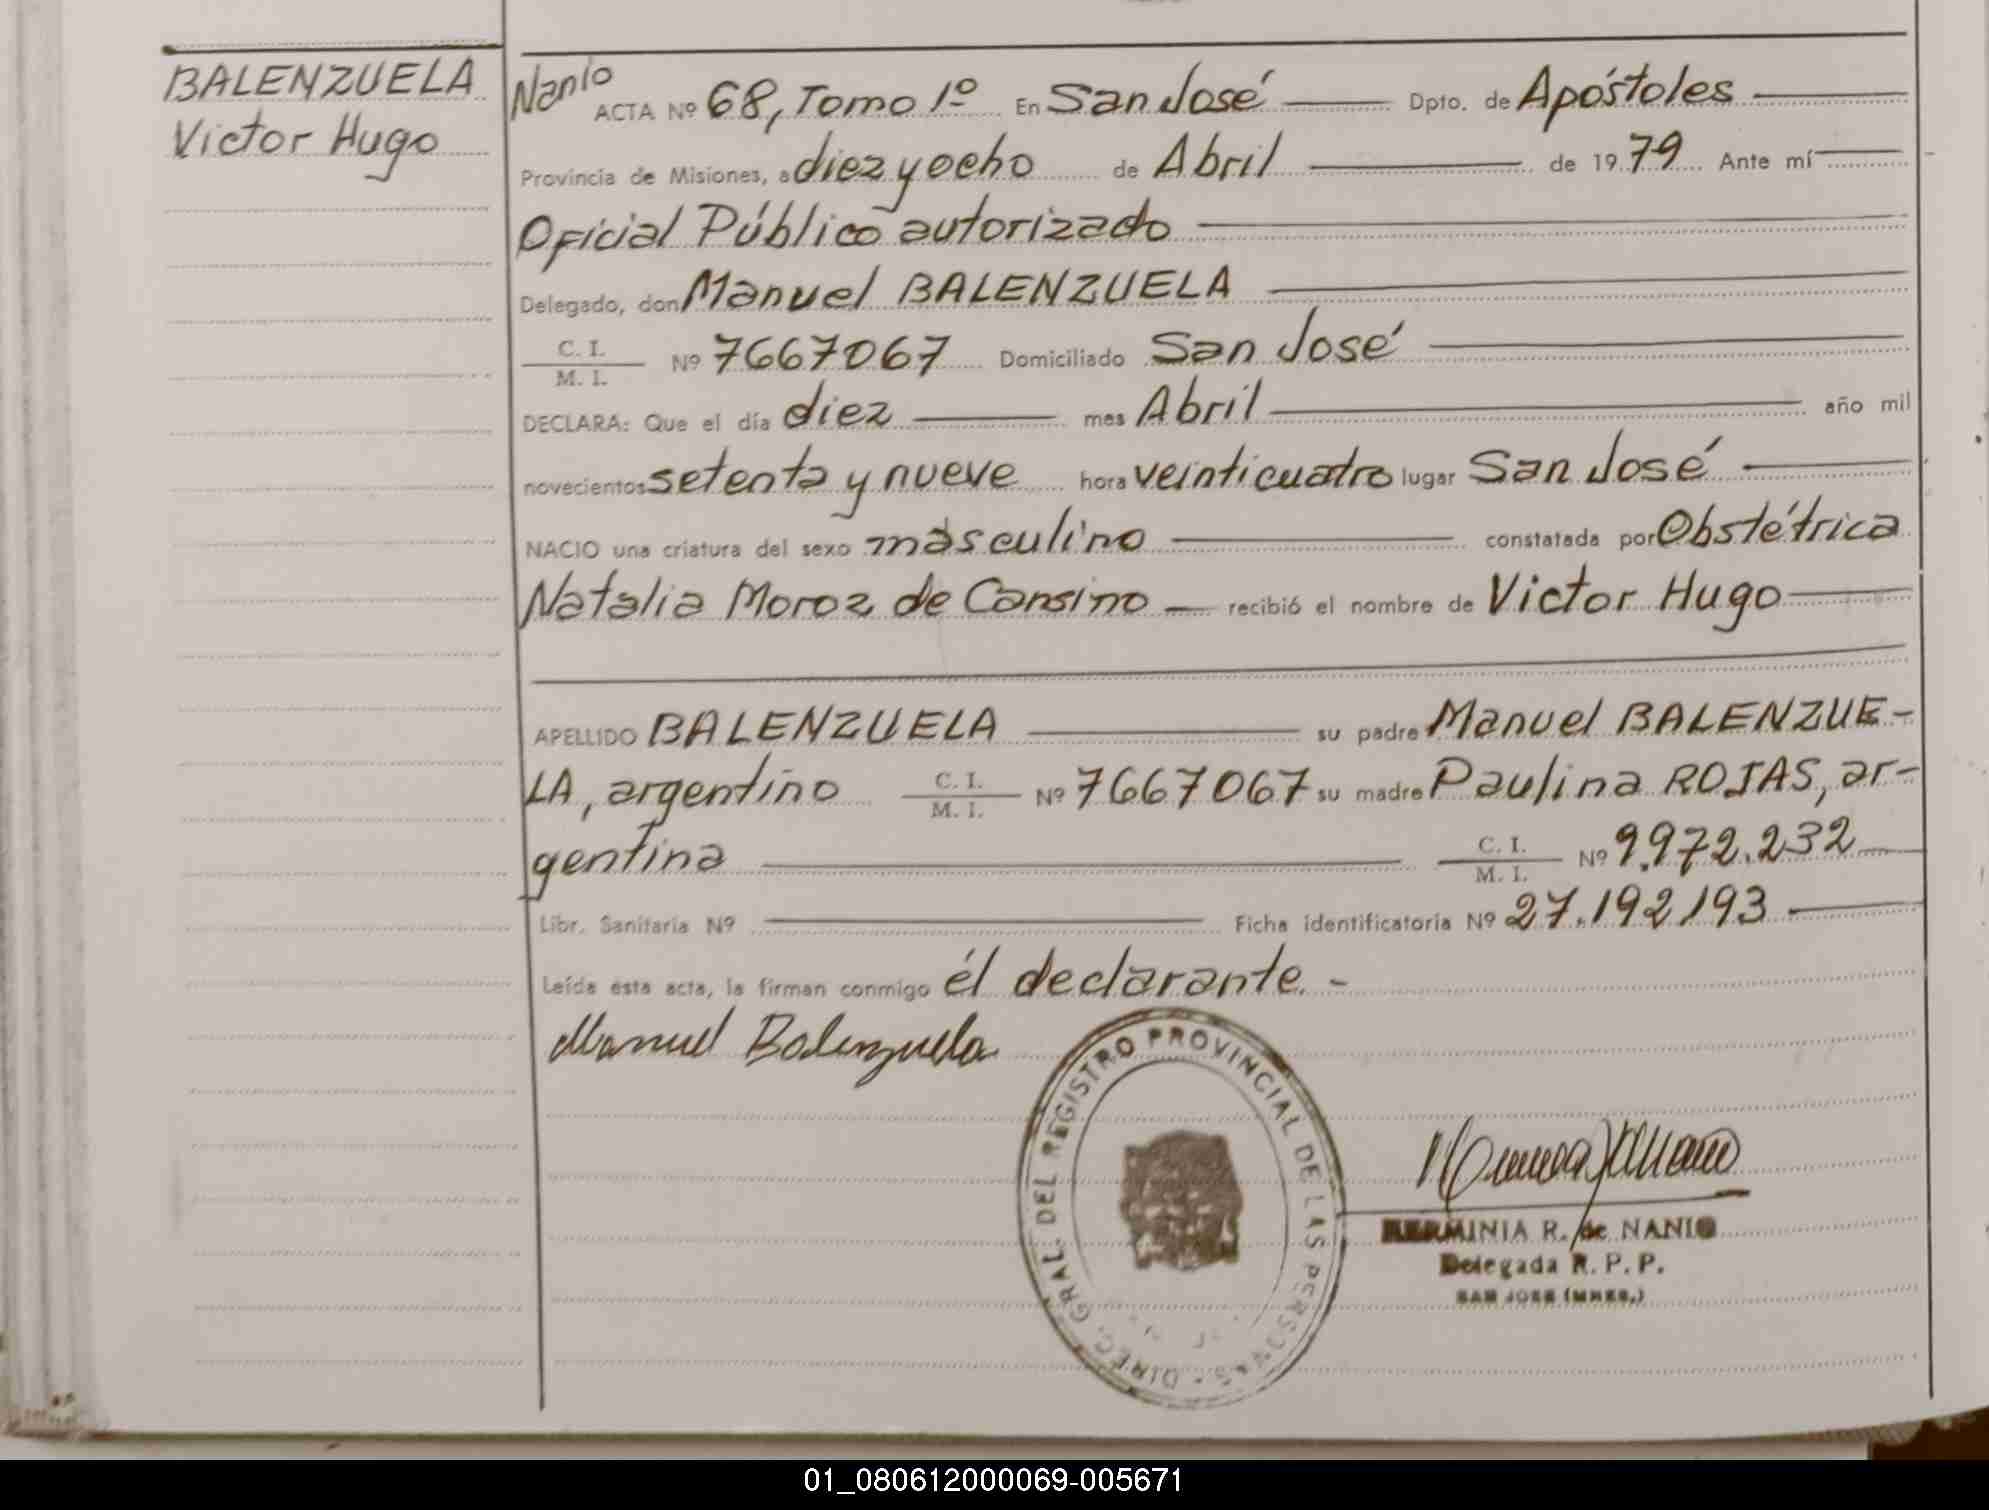 BALENZUELA
Victor Hugo
Nanio
ACTA Nº 68, Tomo 1º En San José Dpto. de Apóstoles
Provincia de Misiones, a diez y ocho de Abril de 1979 Ante mí
Oficial Público autorizado
Delegado, don Manuel BALENZUELA
C. I.
M. I.
Nº 7667067 Domiciliado San José
DECLARA: Que el día diez mes Abril año mil
novecientos setenta y nueve hora veinticuatro lugar San José
NACIO una criatura del sexo masculino constatada por Obstétrica
Natalia Moroz de Cansino recibió el nombre de Victor Hugo
APELLIDO BALENZUELA su padre Manuel BALENZUE-
LA, argentino C. I. M. I. Nº 7667067 su madre Paulina ROJAS, ar-
gentina C. I. M. I. Nº 9.972.232
Libr. Sanitaria Nº Ficha identificatoria Nº 27.192,193
Leída esta acta, la firman conmigo él declarante. -
Manuel Balenzuela
DIREC. GRAL. DEL REGISTRO PROVINCIAL DE LAS PERSONAS
HERMINIA R. de NANIO
Delegada R. P. P.
SAN JOSE (MNES.)
01_080612000069-005671